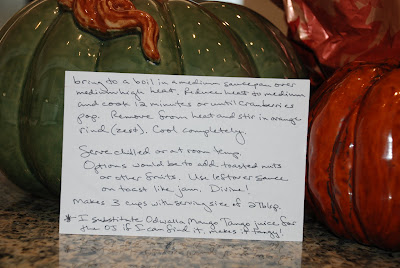 bring to a boil in a medium saucepan over
medium high heat. Reduce heat to medium
and cook 12 minutes or until cranberries
pop. Remove from heat and stir in orange
rind (zest). Cool completely.
Serve chilled or at room temp.
Options would be to add toasted nuts
or other fruits. Use leftover sauce
on toast like jam. Divine!
Makes 3 cups with serving size of 2 Tblsp.
* I substitute Odwalla Mango Tango juice for
the OJ if I can find it. Makes it tangy!